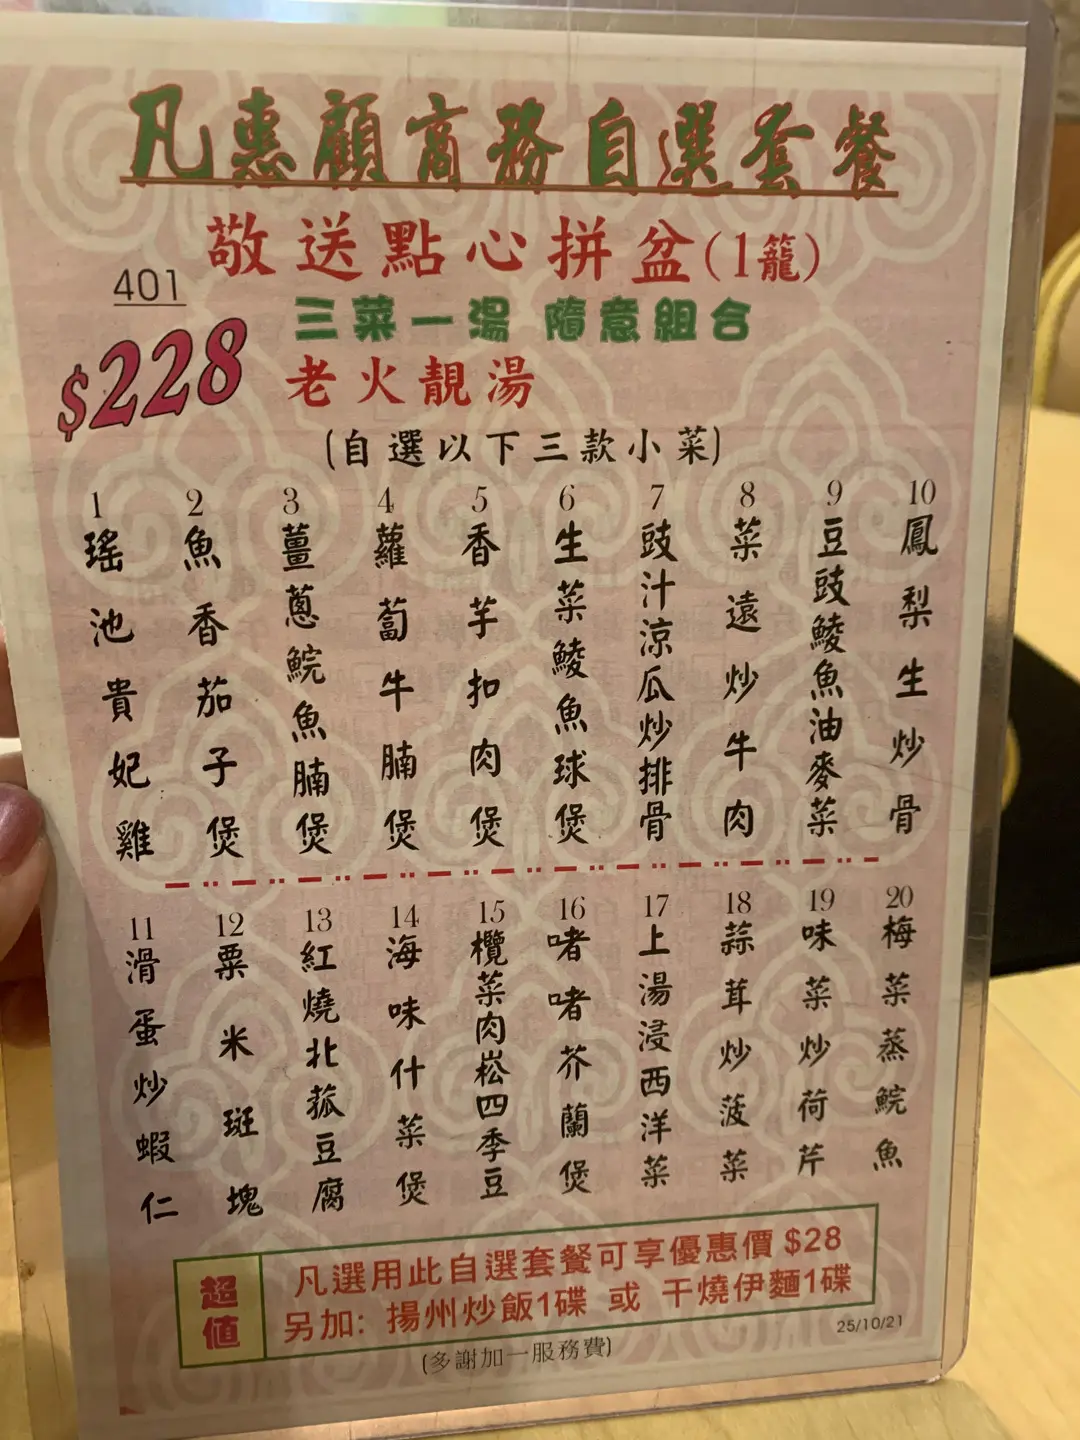 凡惠顧商務自選套餐
敬送點心拼盆(1籠)
401
$228
三菜一湯 隨意組合
老火靚湯
(自選以下三款小菜)
1 瑤池貴妃雞
2 魚香茄子煲
3 薑蔥鯇魚腩煲
4 蘿蔔牛腩煲
5 香芋扣肉煲
6 生菜鯪魚球煲
7 豉汁涼瓜炒排骨
8 菜遠炒牛肉
9 豆豉鯪魚油麥菜
10 鳳梨生炒骨
11 滑蛋炒蝦仁
12 粟米斑塊
13 紅燒北菰豆腐
14 海味什菜煲
15 欖菜肉崧四季豆
16 啫啫芥蘭煲
17 上湯浸西洋菜
18 蒜茸炒菠菜
19 味菜炒荷芹
20 梅菜蒸鯇魚
超值
凡選用此自選套餐可享優惠價 $28
另加: 揚州炒飯1碟 或 干燒伊麵1碟
25/10/21
(多謝加一服務費)